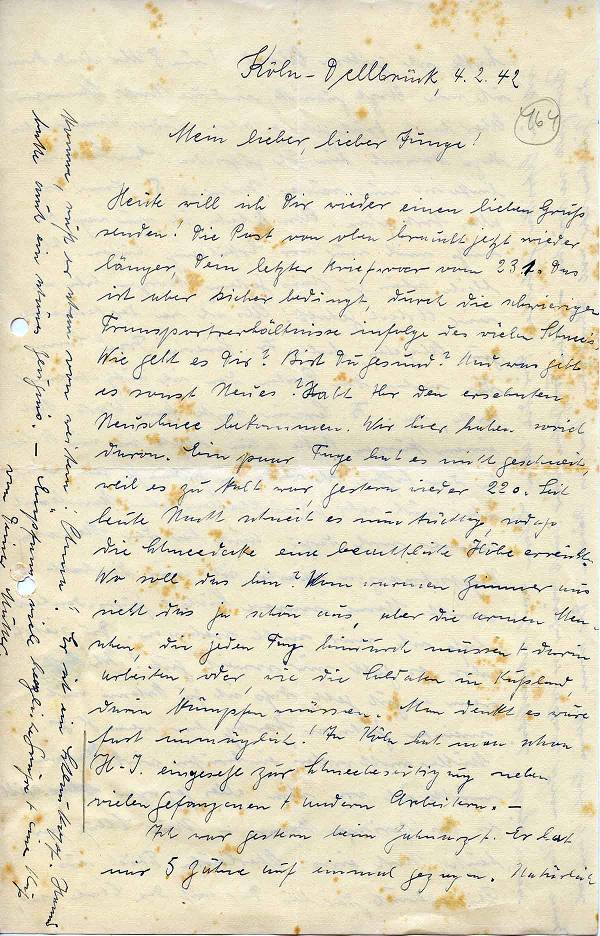 Köln-Dellbrück, 4.2.42
164
Mein lieber, lieber Junge!
Heute will ich Dir wieder einen lieben Gruß
senden! Die Post von oben braucht jetzt wieder
länger, Dein letzter Brief war vom 23.1. Das
ist aber sicher bedingt, durch die schwierigen
Transportverhältnisse infolge des vielen Schnees.
Wie geht es Dir? Bist Du gesund? Und was gibt
es sonst Neues? Habt Ihr den ersehnten
Neuschnee bekommen. Wir hier haben soviel
davon. Ein paar Tage hat es nicht geschneit,
weil es zu kalt war, gestern wieder 22°. Seit
heute Nacht schneit es nun tüchtig, sodaß
die Schneedecke eine beachtliche Höhe erreicht.
Wo soll das hin? Vom warmen Zimmer aus
sieht das ja schön aus, aber die armen Men-
schen, die jeden Tag hindurch müssen + darin
arbeiten, oder, wie die Soldaten in Rußland,
darin kämpfen müssen. Man denkt es wäre
fast unmöglich! In Köln hat man schon
H.-J. eingesetzt zur Schneebeseitigung neben
vielen Gefangenen + andern Arbeitern. –
Ich war gestern beim Zahnarzt. Er hat
mir 5 Zähne auf einmal gezogen. Natürlich
Mama, ruft er dann von weitem: Er ist ein
hatte auch ein Zeugnis. – Empfange viel herzliche Grüße + einen Kuß
von Deiner Mutter.